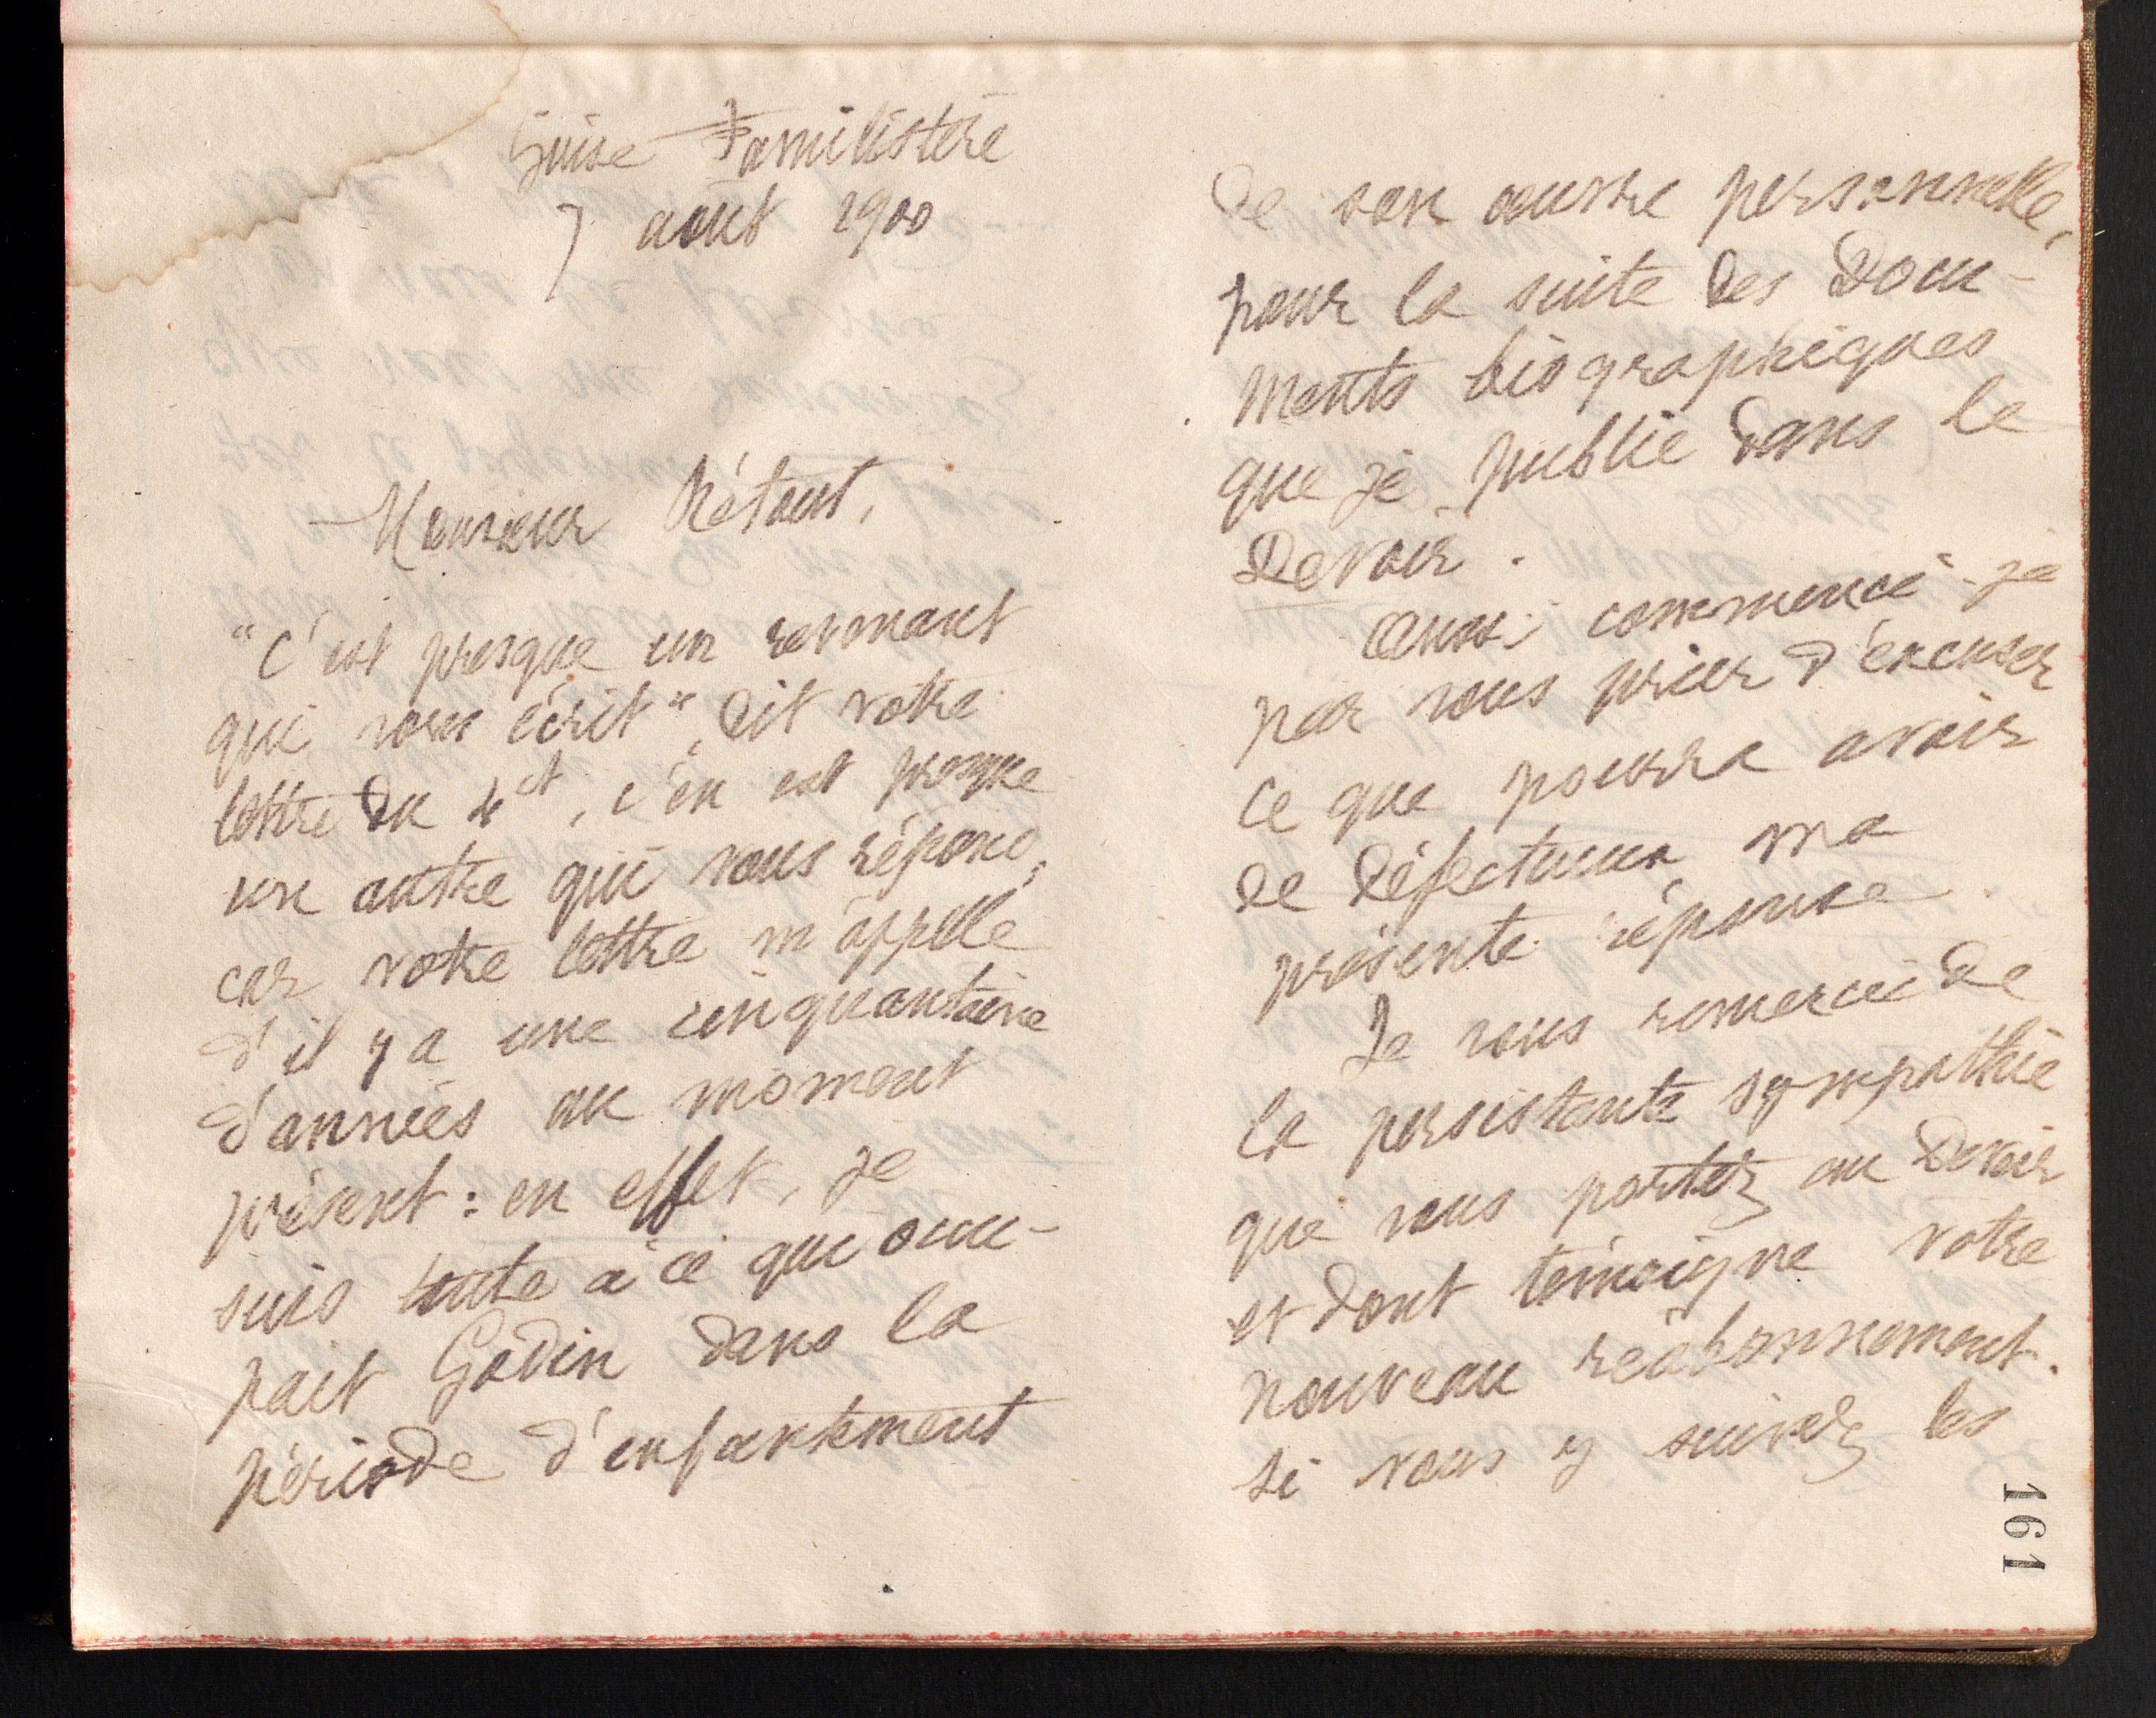 Guise Familistère
7 août 1900
Monsieur Rétout,
"C'est presque un revenant
qui vous écrit", dit votre
lettre du 4 ct, c'en est presque
un autre qui vous répond,
car votre lettre m'appelle
d'il y a une cinquantaine
d'années au moment
présent : en effet, je
suis toute à ce qui occu-
pait Godin dans la
période d'enfantement
de son œuvre personnelle,
pour la suite des Docu-
ments biographiques
que je publie dans le
Devoir.
Aussi commencé-je
par vous prier d'excuser
ce que pourra avoir
de défectueux ma
présente réponse.
Je vous remercie de
la persistante sympathie
que vous portez au Devoir
et dont témoigne votre
nouveau réabonnement.
Si vous y suivez les
161